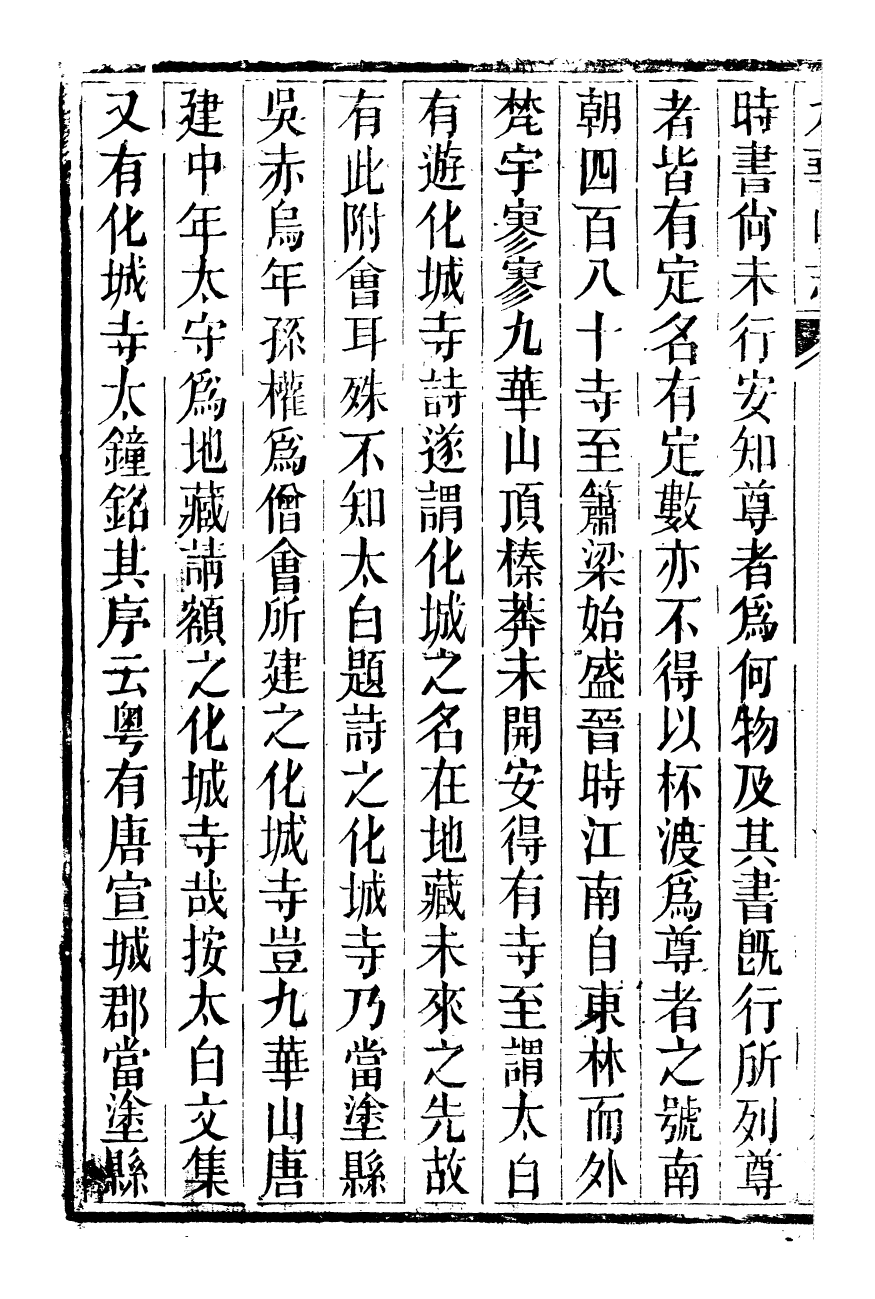 時書尙未行安知尊者爲何物及其書旣行所列尊
者皆有定名有定數亦不得以杯渡爲尊者之號南
朝四百八十寺至簫梁始盛晉時江南自東林而外
梵宇寥寥九華山頂榛莽未開安得有寺至謂太白
有遊化城寺詩遂謂化城之名在地藏未來之先故
有此附會耳殊不知太白題詩之化城寺乃當塗縣
吳赤烏年孫權爲僧會所建之化城寺豈九華山唐
建中年太守爲地藏請額之化城寺哉按太白文集
又有化城寺大鐘銘其序云粤有唐宣城郡當塗縣